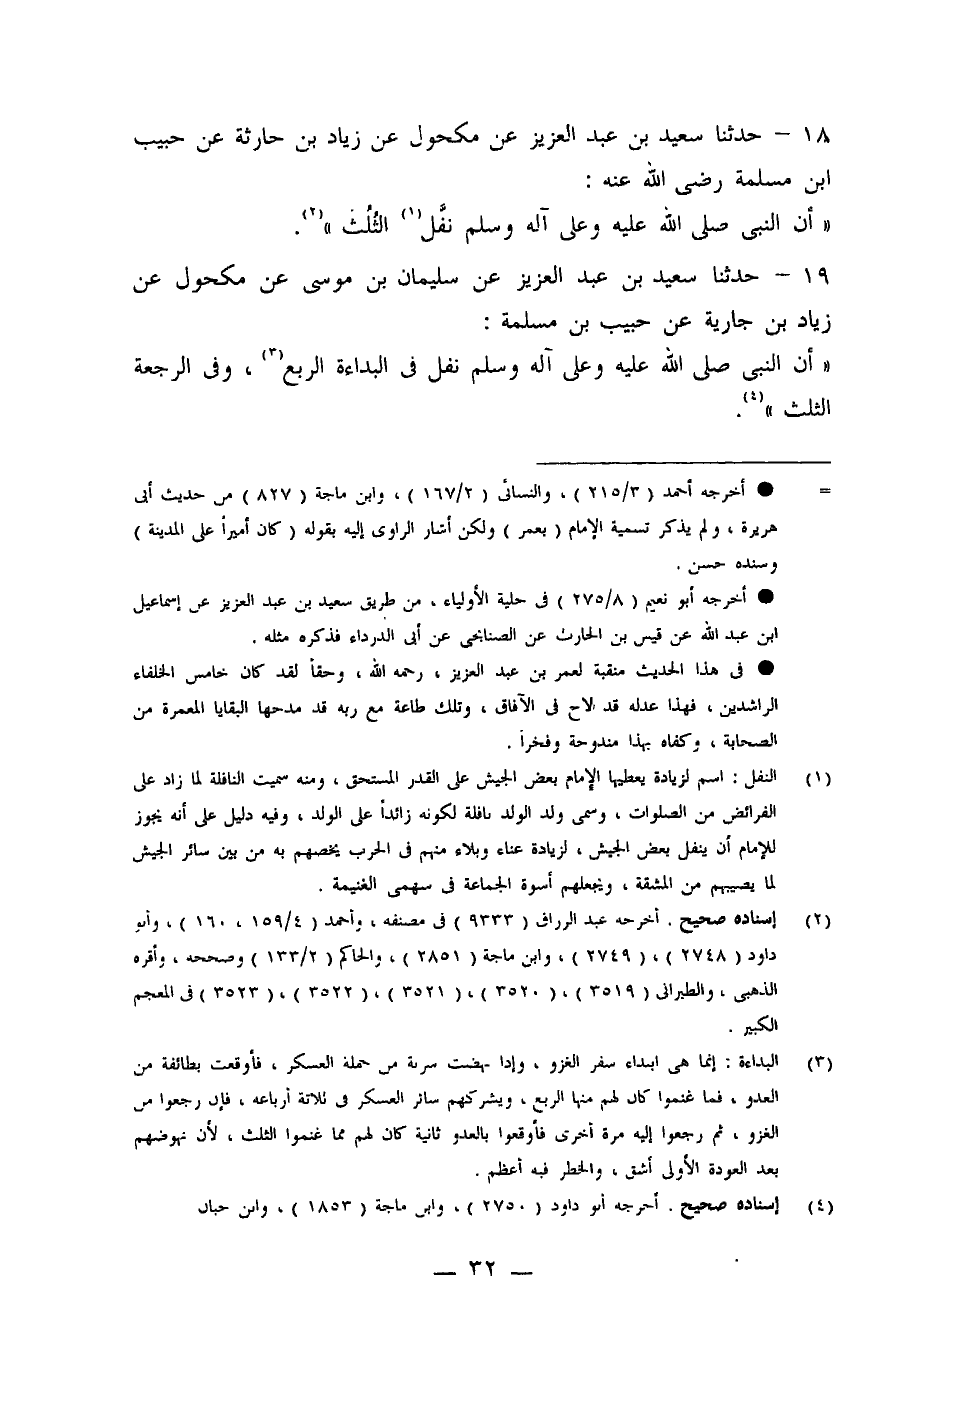 ١٨ – حدثنا سعيد بن عبد العزيز عن مكحول عن زياد بن حارثة عن حبيب
ابن مسلمة رضى الله عنه :
« أن النبى صلى الله عليه وعلى آله وسلم نفَّل(١) الثُلُث »(٢).
١٩ – حدثنا سعيد بن عبد العزيز عن سليمان بن موسى عن مكحول عن
زياد بن جارية عن حبيب بن مسلمة :
« أن النبى صلى الله عليه وعلى آله وسلم نفل فى البداءة الربع(٣) ، وفى الرجعة
الثلث »(٤).
= ● أخرجه أحمد ( ٢١٥/٣ ) ، والنسائى ( ١٦٧/٢ ) ، وابن ماجة ( ٨٢٧ ) من حديث أبى
هريرة ، ولم يذكر تسمية الإمام ( بعمر ) ولكن أشار الراوى إليه بقوله ( كان أميراً على المدينة )
وسنده حسن .
● أخرجه أبو نعيم ( ٢٧٥/٨ ) فى حلية الأولياء ، من طريق سعيد بن عبد العزيز عن إسماعيل
ابن عبد الله عن قيس بن الحارث عن الصنابحى عن أبى الدرداء فذكره مثله .
● فى هذا الحديث منقبة لعمر بن عبد العزيز ، رحمه الله ، وحقاً لقد كان خامس الخلفاء
الراشدين ، فهذا عدله قد لاح فى الآفاق ، وتلك طاعة مع ربه قد مدحها البقايا المعمرة من
الصحابة ، وكفاه بهذا مندوحة وفخراً .
(١) النفل : اسم لزيادة يعطيها الإمام بعض الجيش على القدر المستحق ، ومنه سميت النافلة لما زاد على
الفرائض من الصلوات ، وسمى ولد الولد نافلة لكونه زائداً على الولد ، وفيه دليل على أنه يجوز
للإمام أن ينفل بعض الجيش ، لزيادة عناء وبلاء منهم فى الحرب يخصهم به من بين سائر الجيش
لما يصيبهم من المشقة ، ويجعلهم أسوة الجماعة فى سهمى الغنيمة .
(٢) إسناده صحيح . أخرجه عبد الرزاق ( ٩٣٣٣ ) فى مصنفه ، وأحمد ( ١٥٩/٤ ، ١٦٠ ) ، وأبو
داود ( ٢٧٤٨ ) ، ( ٢٧٤٩ ) ، وابن ماجة ( ٢٨٥١ ) ، والحاكم ( ١٣٣/٢ ) وصححه ، وأقره
الذهبى ، والطبرانى ( ٣٥١٩ ) ، ( ٣٥٢٠ ) ، ( ٣٥٢١ ) ، ( ٣٥٢٢ ) ، ( ٣٥٢٣ ) فى المعجم
الكبير .
(٣) البداءة : إنما هى ابتداء سفر الغزو ، وإذا نهضت سرية من جملة العسكر ، فأوقعت بطائفة من
العدو ، فما غنموا كان لهم منها الربع ، ويشركهم سائر العسكر فى ثلاثة أرباعه ، فإن رجعوا من
الغزو ، ثم رجعوا إليه مرة أخرى فأوقعوا بالعدو ثانية كان لهم مما غنموا الثلث ، لأن نهوضهم
بعد العودة الأولى أشق ، والخطر فيه أعظم .
(٤) إسناده صحيح . أخرجه أبو داود ( ٢٧٥٠ ) ، وابن ماجة ( ١٨٥٣ ) ، وابن حبان
— ٣٢ —